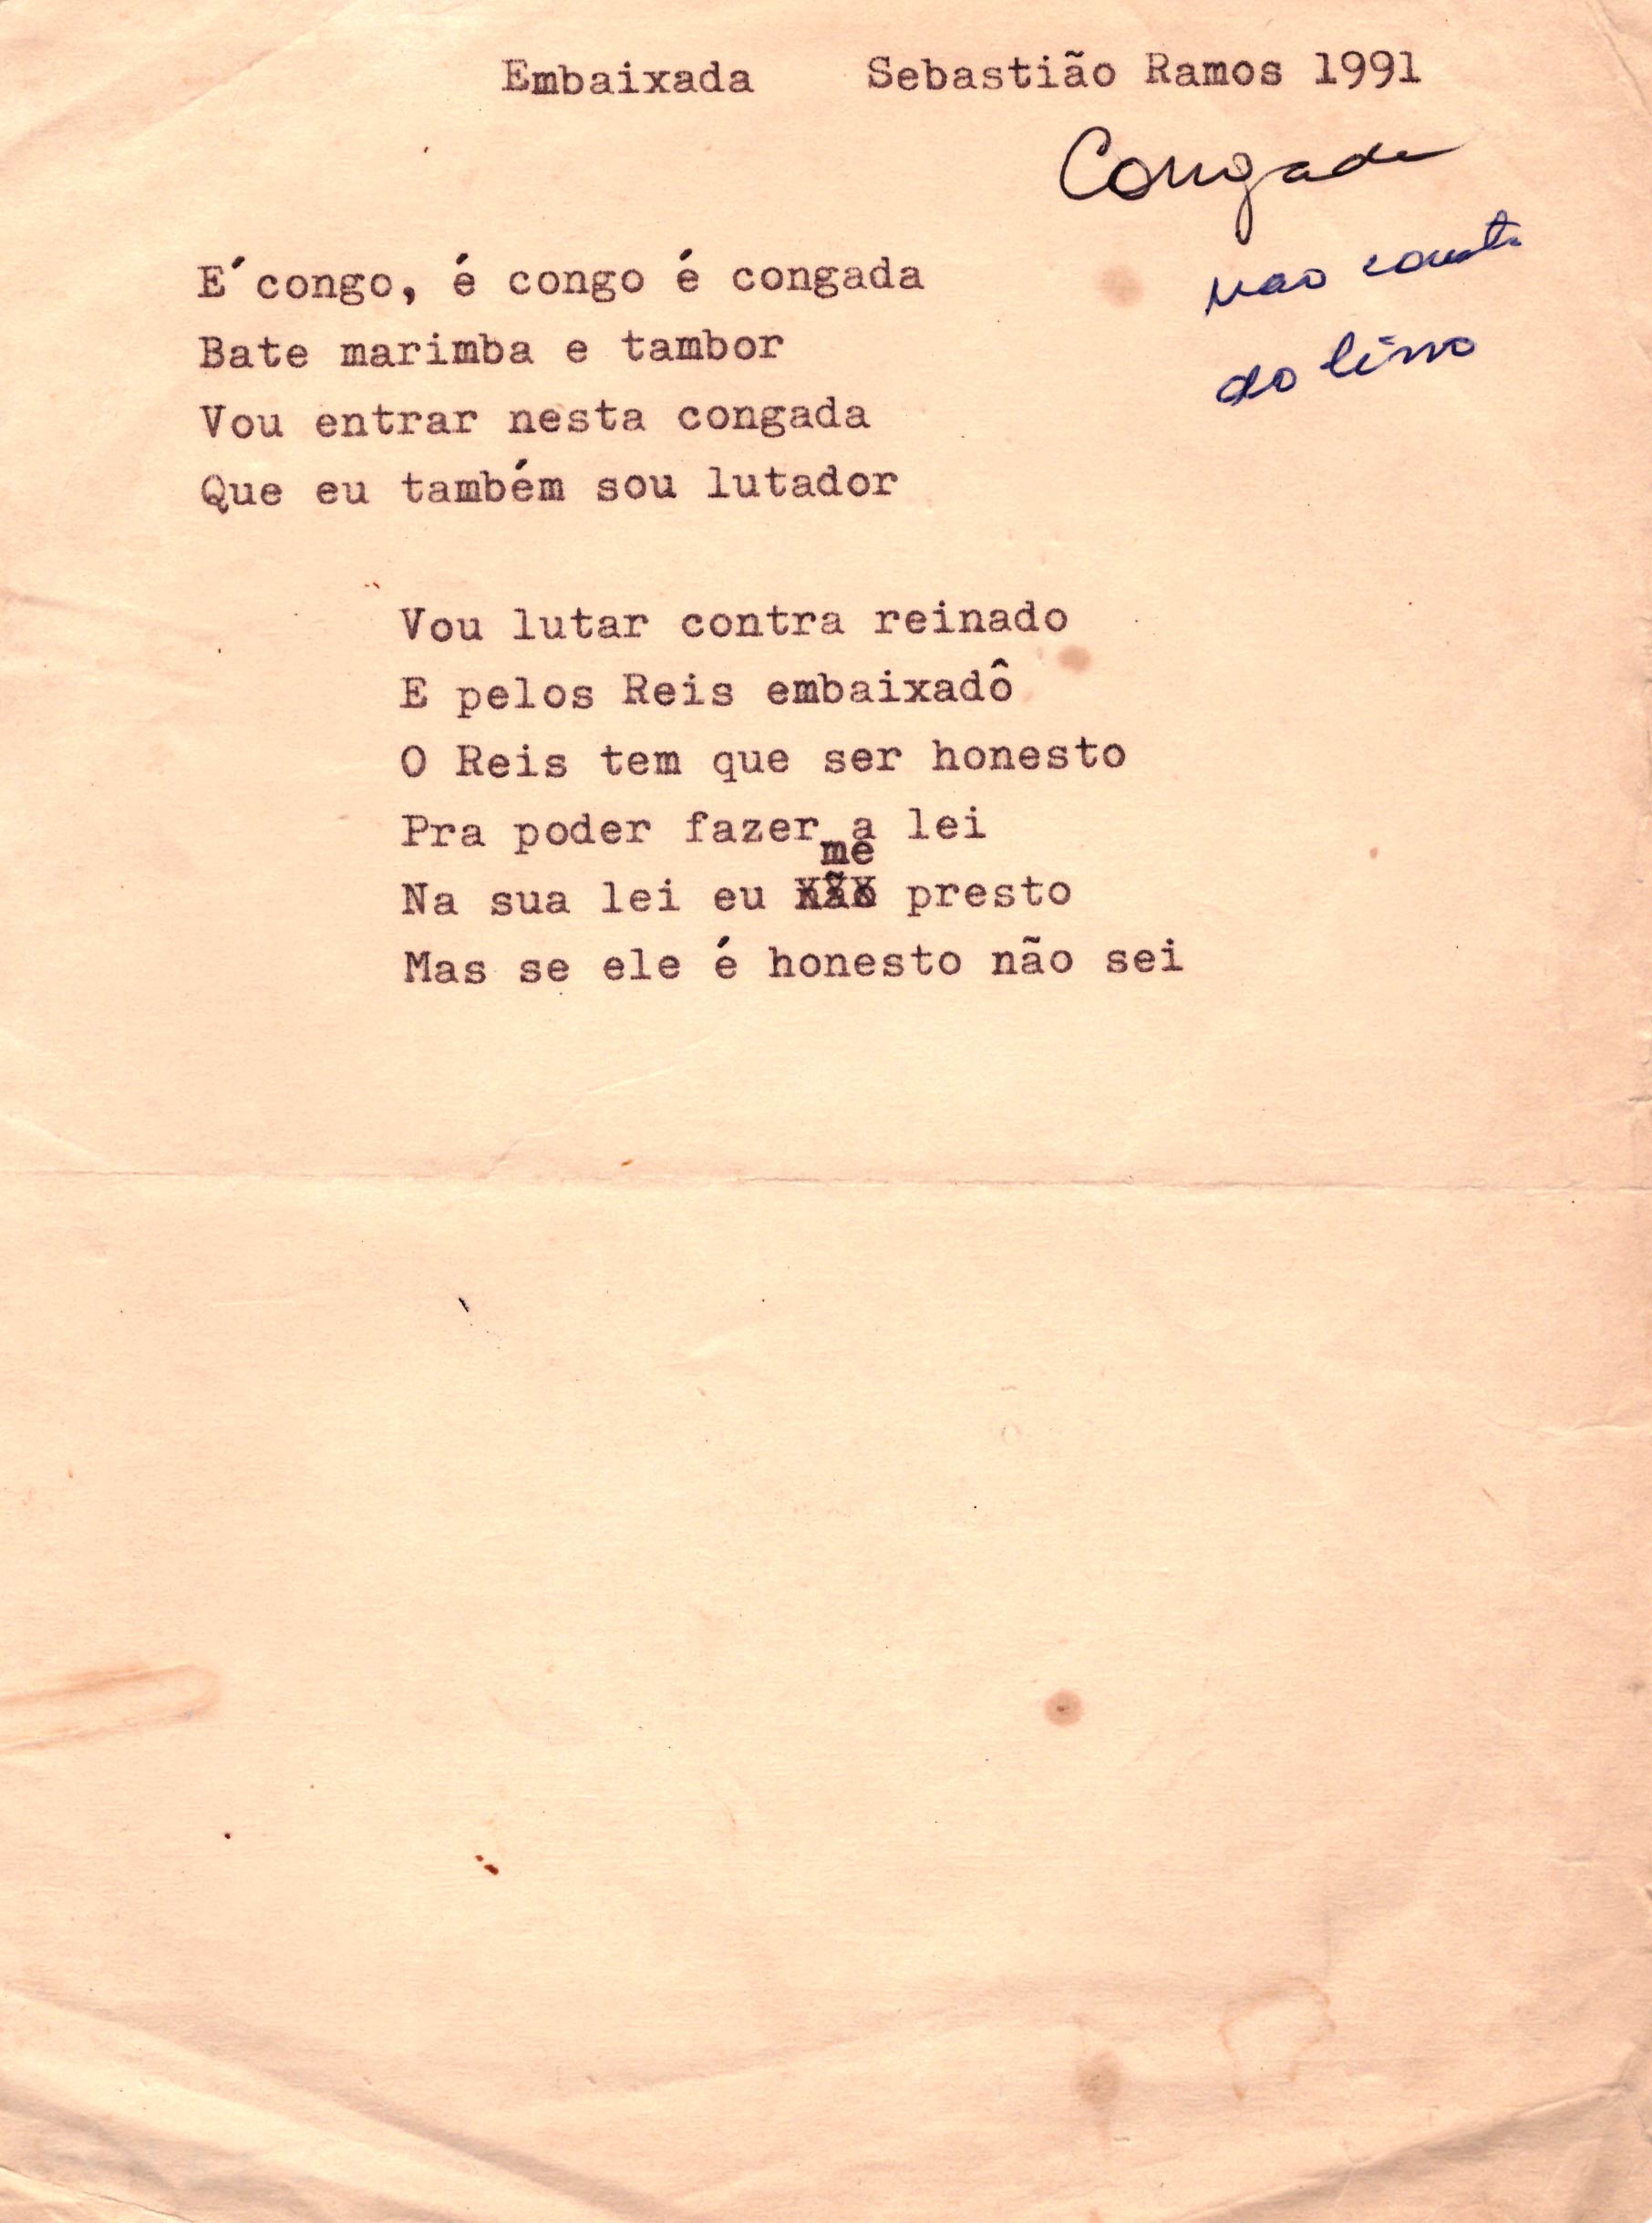 Embaixada Sebastião Ramos 1991
Congada
não consta
do livro
E´congo, é congo é congada
Bate marimba e tambor
Vou entrar nesta congada
Que eu também sou lutador
Vou lutar contra reinado
E pelos Reis embaixadô
O Reis tem que ser honesto
Pra poder fazer a lei
me
Na sua lei eu não presto
Mas se ele é honesto não sei